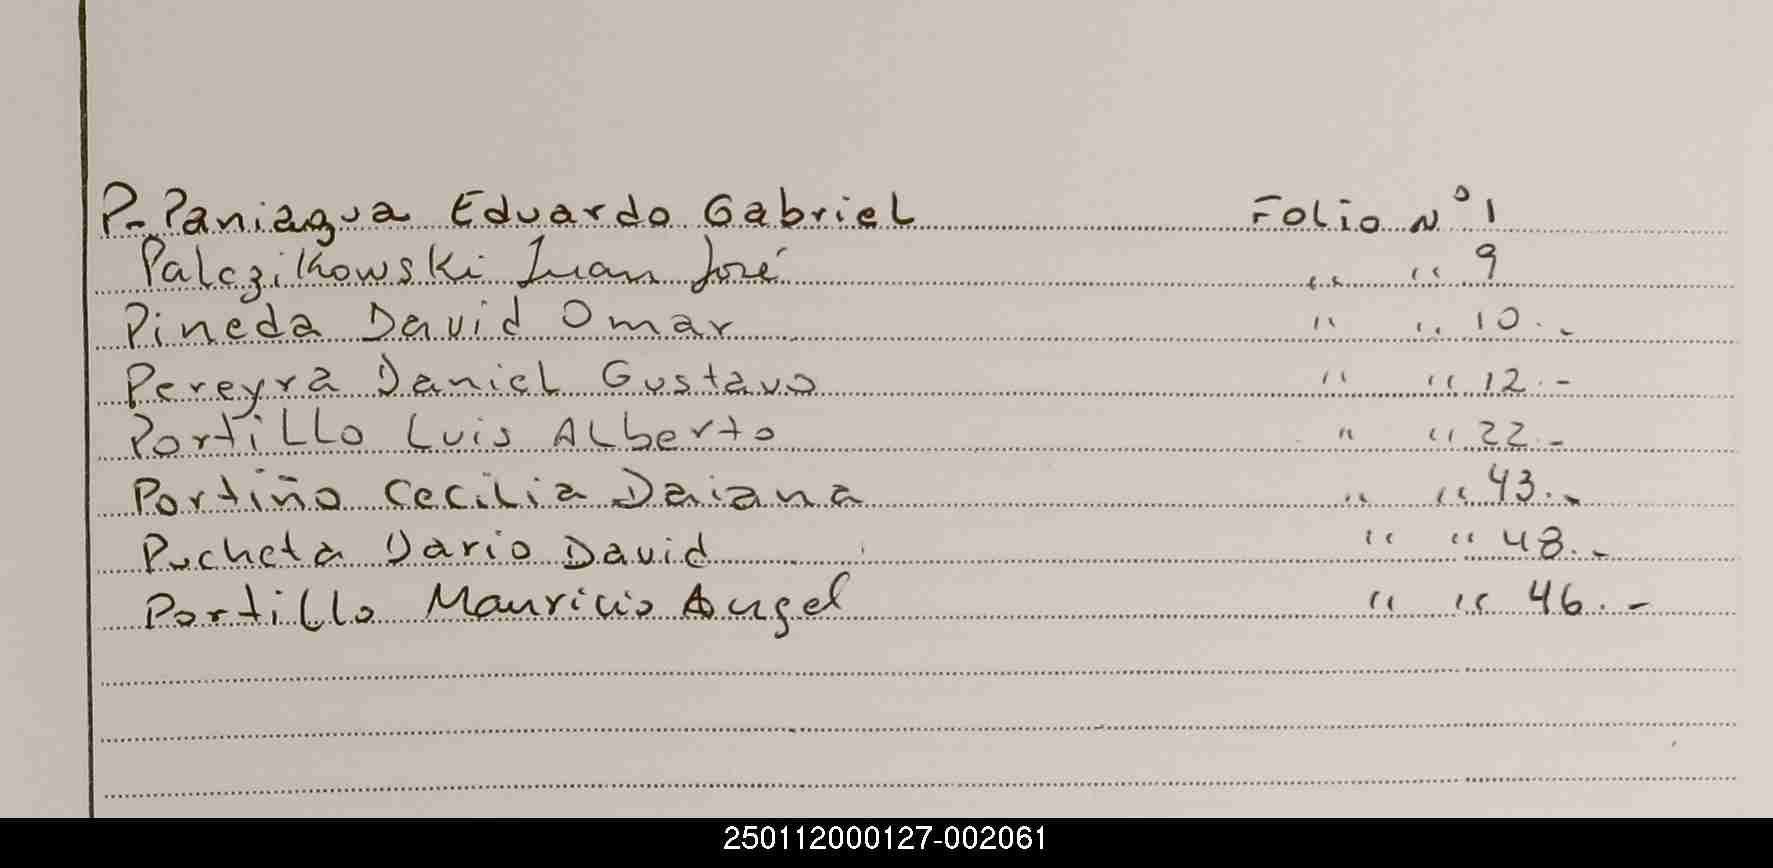 P- Paniagua Eduardo Gabriel Folio N° 1
Palczikowski Juan José " " 9
Pineda David Omar " " 10.-
Pereyra Daniel Gustavo " " 12.-
Portillo Luis Alberto " " 22.-
Portiño Cecilia Daiana " " 43.-
Pucheta Dario David " " 48.-
Portillo Mauricio Angel " " 46.-
250112000127-002061